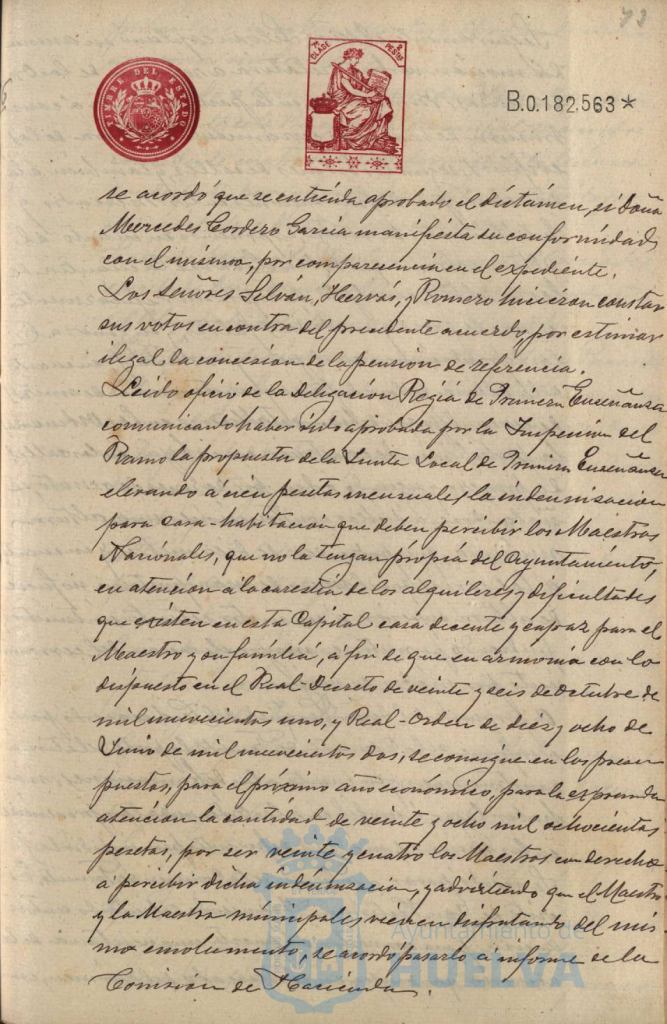 73
TIMBRE DEL ESTADO
7ª CLASE
2 PESTAS
B.0.182.563*
se acordó que se entienda aprobado el dictámen, si Doña
Mercedes Cordero García manifiesta su conformidad
con el mismo, por comparesencia en el expediente.
Los Señores Selván, Hervás, y Romero hiciéron constar
sus votos en contra del precedente acuerdo, por estimar
ilegal la concesion de la pension de referencia.
Leido oficio de la Delegacion Regia de Primera Enseñansa
comunicando haber sido aprobada por la Inspeccion del
Ramo la propuesta de la Junta Local de Primera Enseñansa
elevando á cien pesetas mensuales la indemnisacion
para casa-habitación que deben percibir los Maestros
Nacionales, que no la tengan própia del Ayuntamiento,
en atencion á la carestia de los alquileres y dificultades
que existen en esta Capital casa decente y capaz para el
Maestro y su família, á fin de que en armonia con lo
dispuesto en el Real-Decreto de veinte y seis de Octubre de
mil nuevecientos uno, y Real-Orden de diez y ocho de
Junio de mil nuevecientos dos, se consigne en los presu
puestos, para el próximo año económico, para la expresada
atencion la cantidad de veinte y ocho mil ochocientas
pesetas, por ser veinte y cuatro los Maestros con derecho
á percibir dicha indemnisacion, y advirtiendo que el Maestro
y la Maestra municipales vienen disfrutando del mis
mo emolumento, se acordó pasarlo á informe de la
Comisión de Hacienda.
Ayuntamiento de
HUELVA